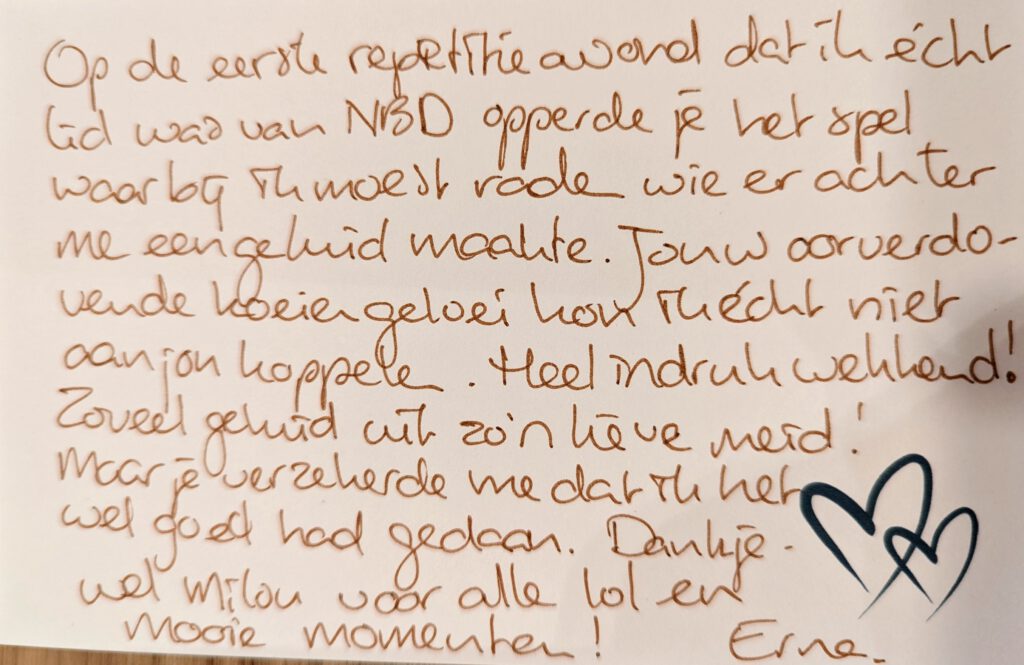 Op de eerste repetitie avond dat ik écht
lid was van NBD opperde je het spel
waarbij ik moest rade wie er achter
me een geluid maakte. Jouw oorverdo-
vende koeiengeloei kon ik écht niet
aan jou koppelen. Heel indrukwekkend!
Zoveel geluid uit zo'n lieve meid!
Maar je verzekerde me dat ik het
wel goed had gedaan. Dankje-
wel Milou voor alle lol en
mooie momenten! Erna.